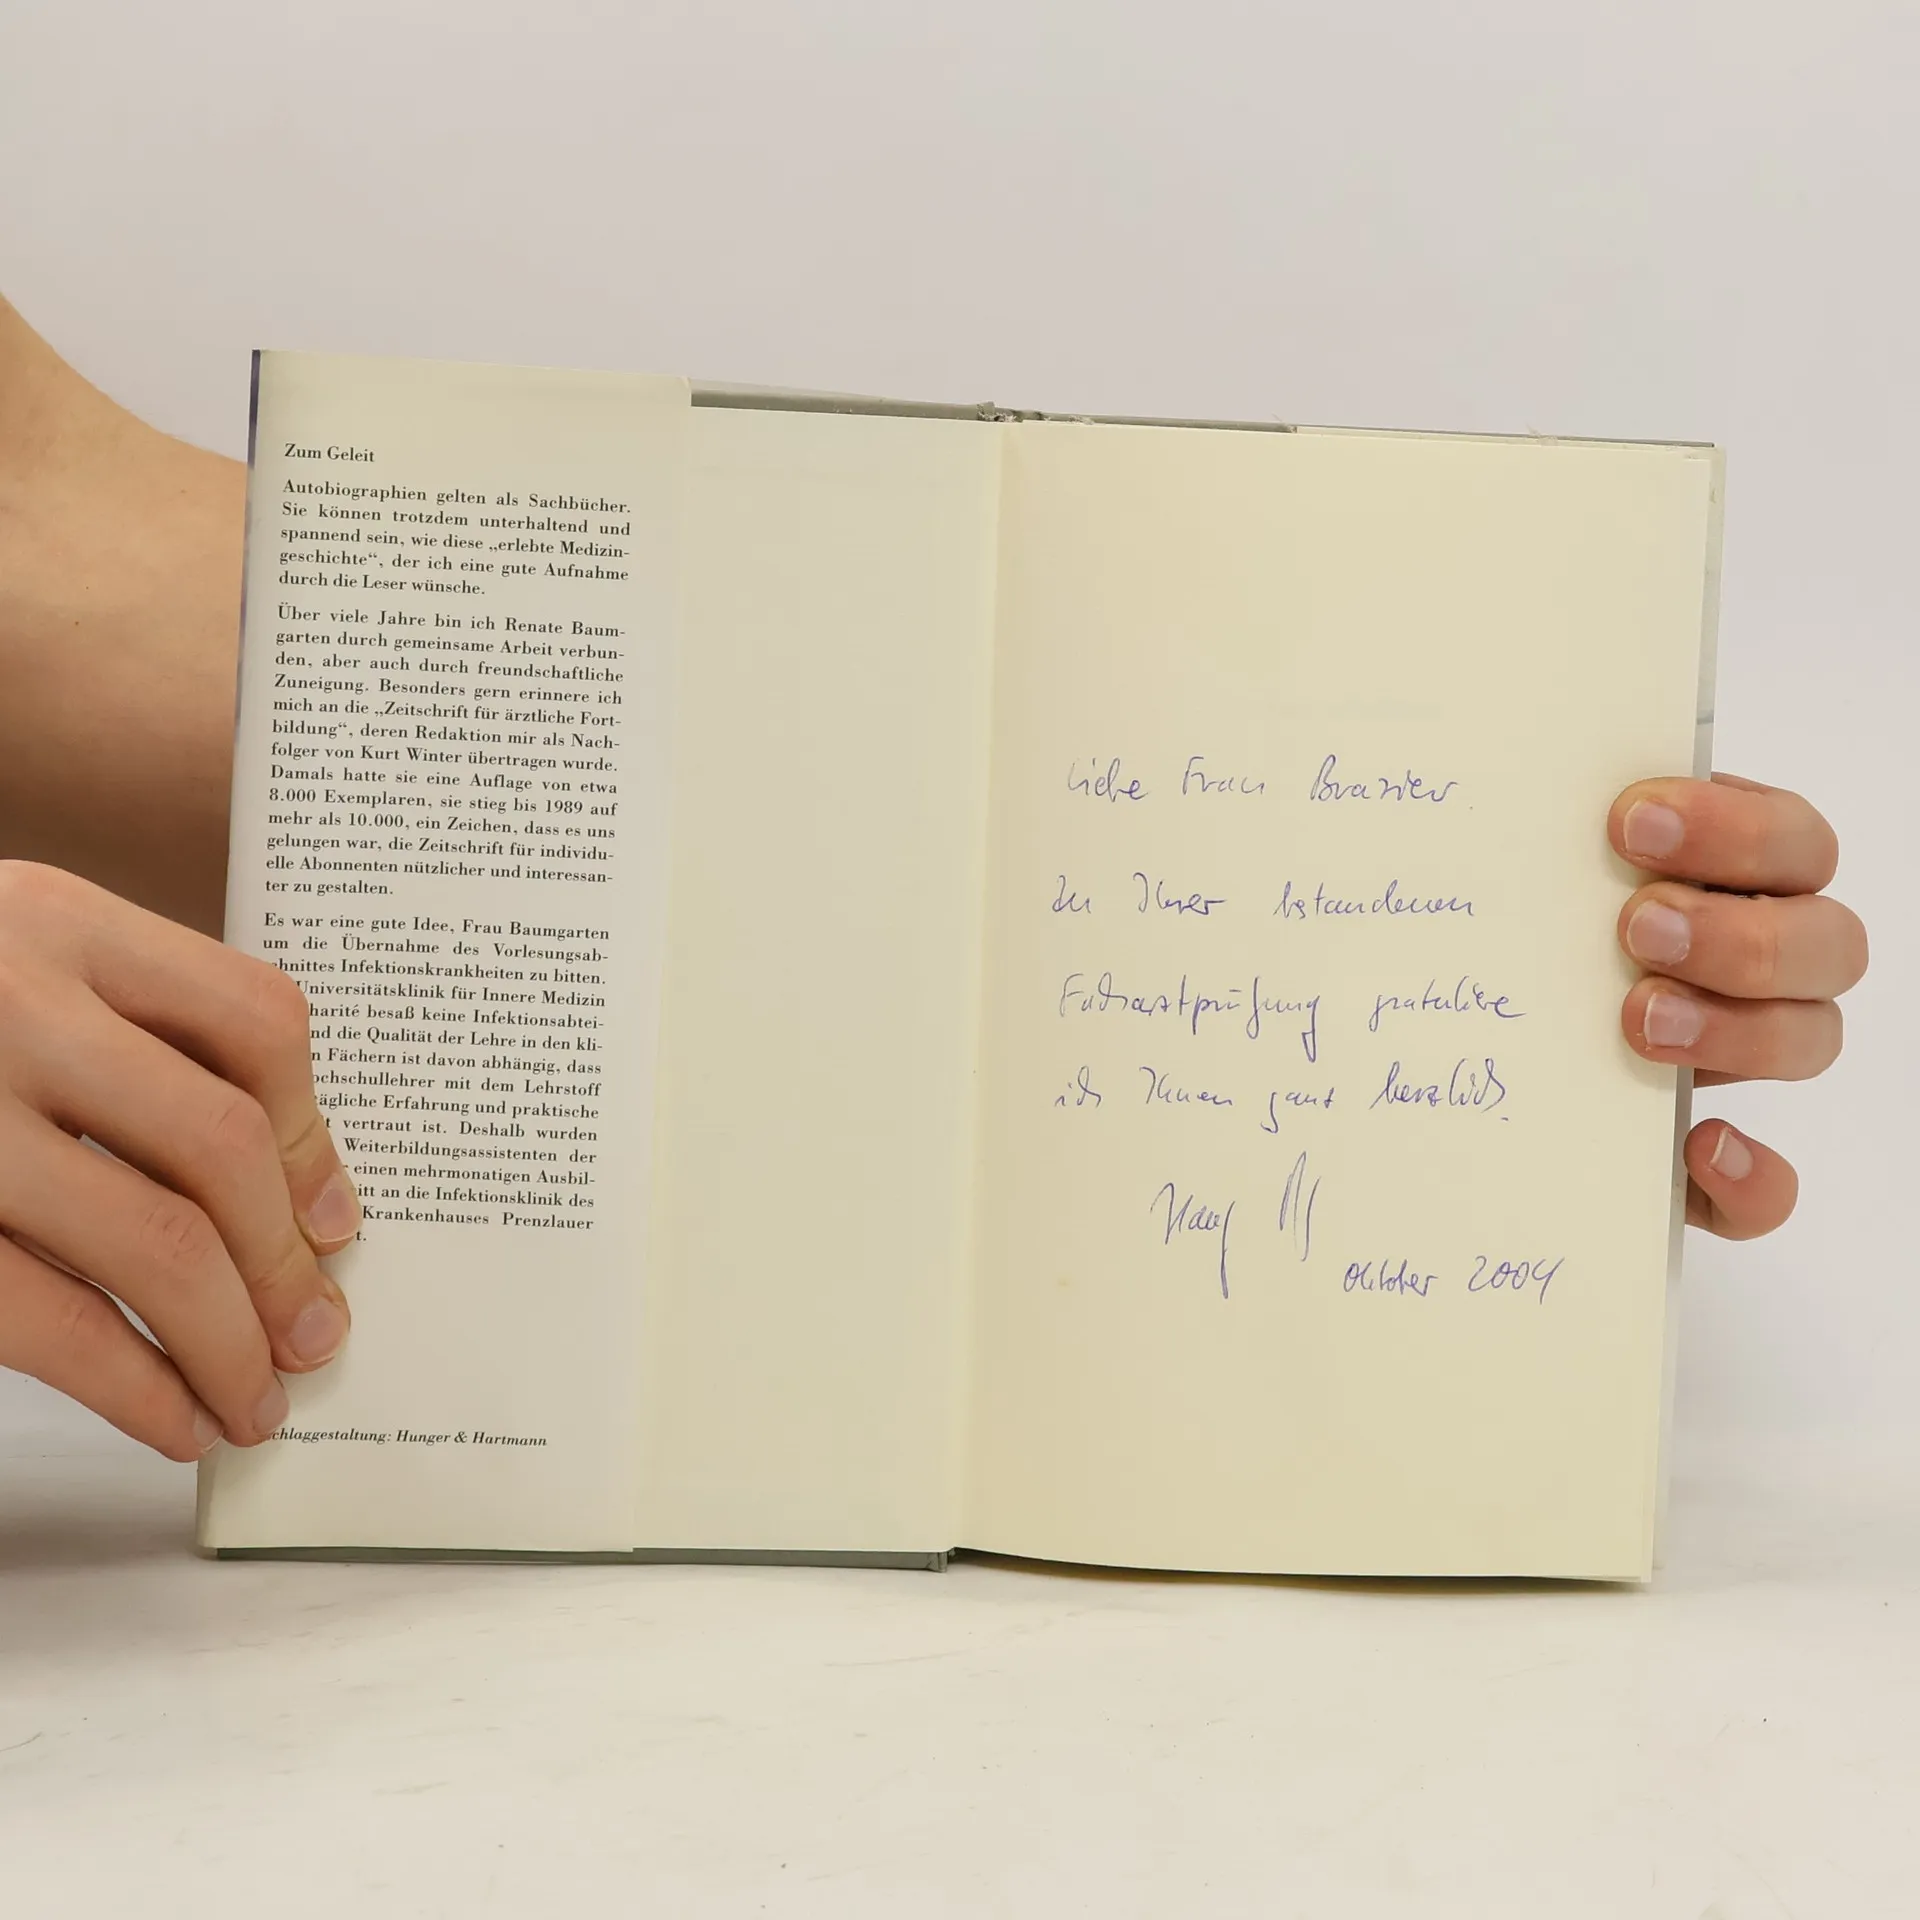 Zum Geleit
Autobiographien gelten als Sachbücher.
Sie können trotzdem unterhaltend und
spannend sein, wie diese „erlebte Medizin-
geschichte“, der ich eine gute Aufnahme
durch die Leser wünsche.
Über viele Jahre bin ich Renate Baum-
garten durch gemeinsame Arbeit verbun-
den, aber auch durch freundschaftliche
Zuneigung. Besonders gern erinnere ich
mich an die „Zeitschrift für ärztliche Fort-
bildung“, deren Redaktion mir als Nach-
folger von Kurt Winter übertragen wurde.
Damals hatte sie eine Auflage von etwa
8.000 Exemplaren, sie stieg bis 1989 auf
mehr als 10.000, ein Zeichen, dass es uns
gelungen war, die Zeitschrift für individu-
elle Abonnenten nützlicher und interessan-
ter zu gestalten.
Es war eine gute Idee, Frau Baumgarten
um die Übernahme des Vorlesungsab-
chnittes Infektionskrankheiten zu bitten.
Universitätsklinik für Innere Medizin
harité besaß keine Infektionsabtei-
nd die Qualität der Lehre in den kli-
n Fächern ist davon abhängig, dass
ochschullehrer mit dem Lehrstoff
ägliche Erfahrung und praktische
t vertraut ist. Deshalb wurden
Weiterbildungsassistenten der
r einen mehrmonatigen Ausbil-
itt an die Infektionsklinik des
Krankenhauses Prenzlauer
t.
chlaggestaltung: Hunger & Hartmann
Liebe Frau
Zu Ihrer bestandenen
Facharztprüfung gratuliere
ich Ihnen ganz herzlich.
Oktober 2004